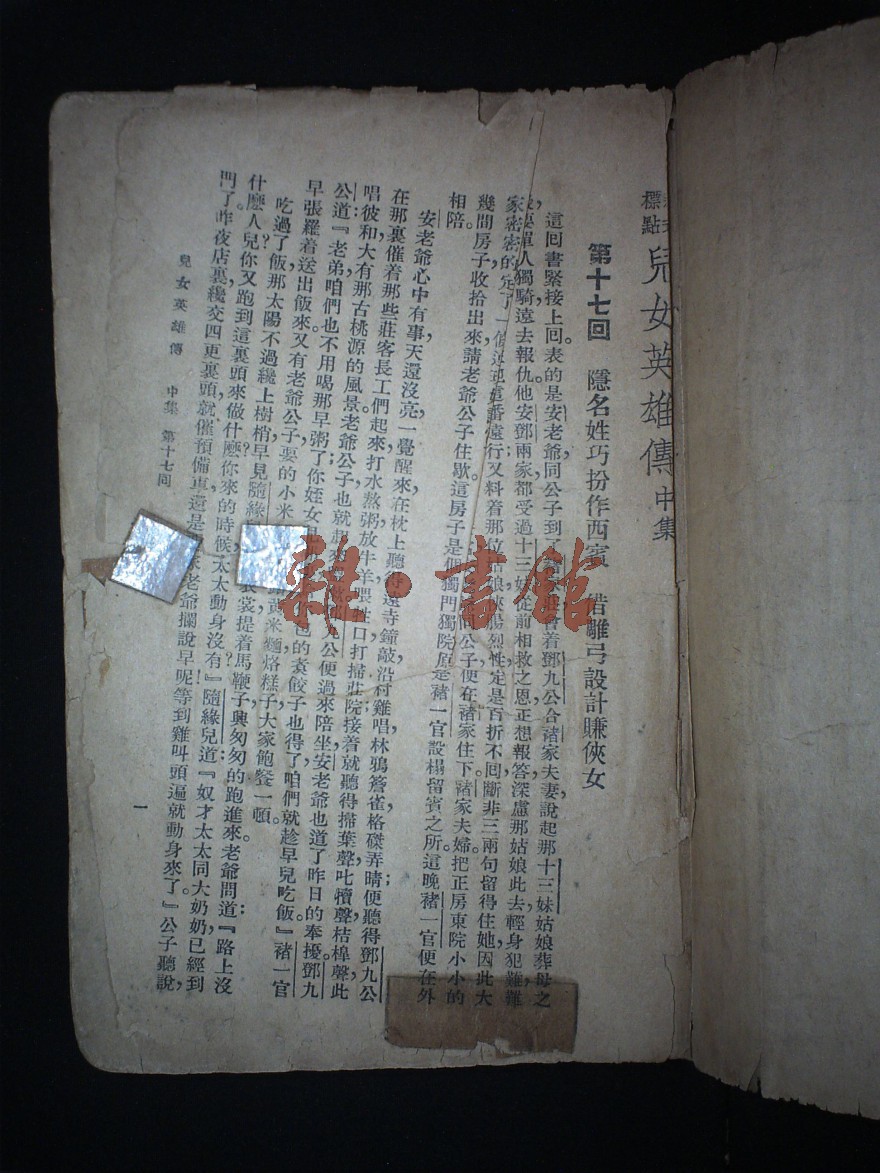 標點 兒女英雄傳 中集
第十七回 隱名姓巧扮作西賓 借雕弓設計賺俠女
這回書緊接上回。表的是安老爺同公子到了褚家莊會着鄧九公合褚家夫妻說起那十三妹姑娘葬母之
後要單人獨騎遠去報仇他安鄧兩家都受過十三妹從前相救之恩正想報答深慮那姑娘此去輕身犯難難
家密密的定了一個 遠行又料着那位姑娘俠腸烈性定是百折不回斷非三兩句留得住她因此大
幾間房子收拾出來請老爺公子住歇。這房子是個獨門獨院原是褚一官設榻留賓之所。這晚褚一官便在外
相陪。
安老爺心中有事天還沒亮一覺醒來在枕上聽得遠寺鐘敲沿村雞唱林鴉簷雀格磔弄晴便聽得鄧九公
在那裏催着那些莊客長工們起來打水熬粥放牛羊喂牲口打掃莊院接着就聽得掃葉聲叱犢聲桔槔聲此
唱彼和大有那古桃源的風景老爺公子也就起 公便過來陪坐安老爺也道了昨日的奉擾鄧九
公道『老弟咱們也不用喝那早粥了你姪女 也的袁餃子也得了咱們就趁早兒吃飯。』褚一官
早張羅着送出飯來又有老爺公子要的小米 黃米麵烙糕子大家飽餐一頓。
吃過了飯那太陽不過纔上樹梢早見隨緣 衣裳提着馬鞭子興匆匆的跑進來。老爺問道:『路上沒
什麽人兒你又跑到這裏頭來做什麽?你來的時候太太動身沒有?』隨緣兒道『奴才太太同大奶奶已經到
門了。昨夜店裏纔交四更裏頭就催預備車還是 老爺攔說早呢等到雞叫頭遍就動身來了。』公子聽說,
兒女英雄傳 中集 第十七回
一
雜·書館